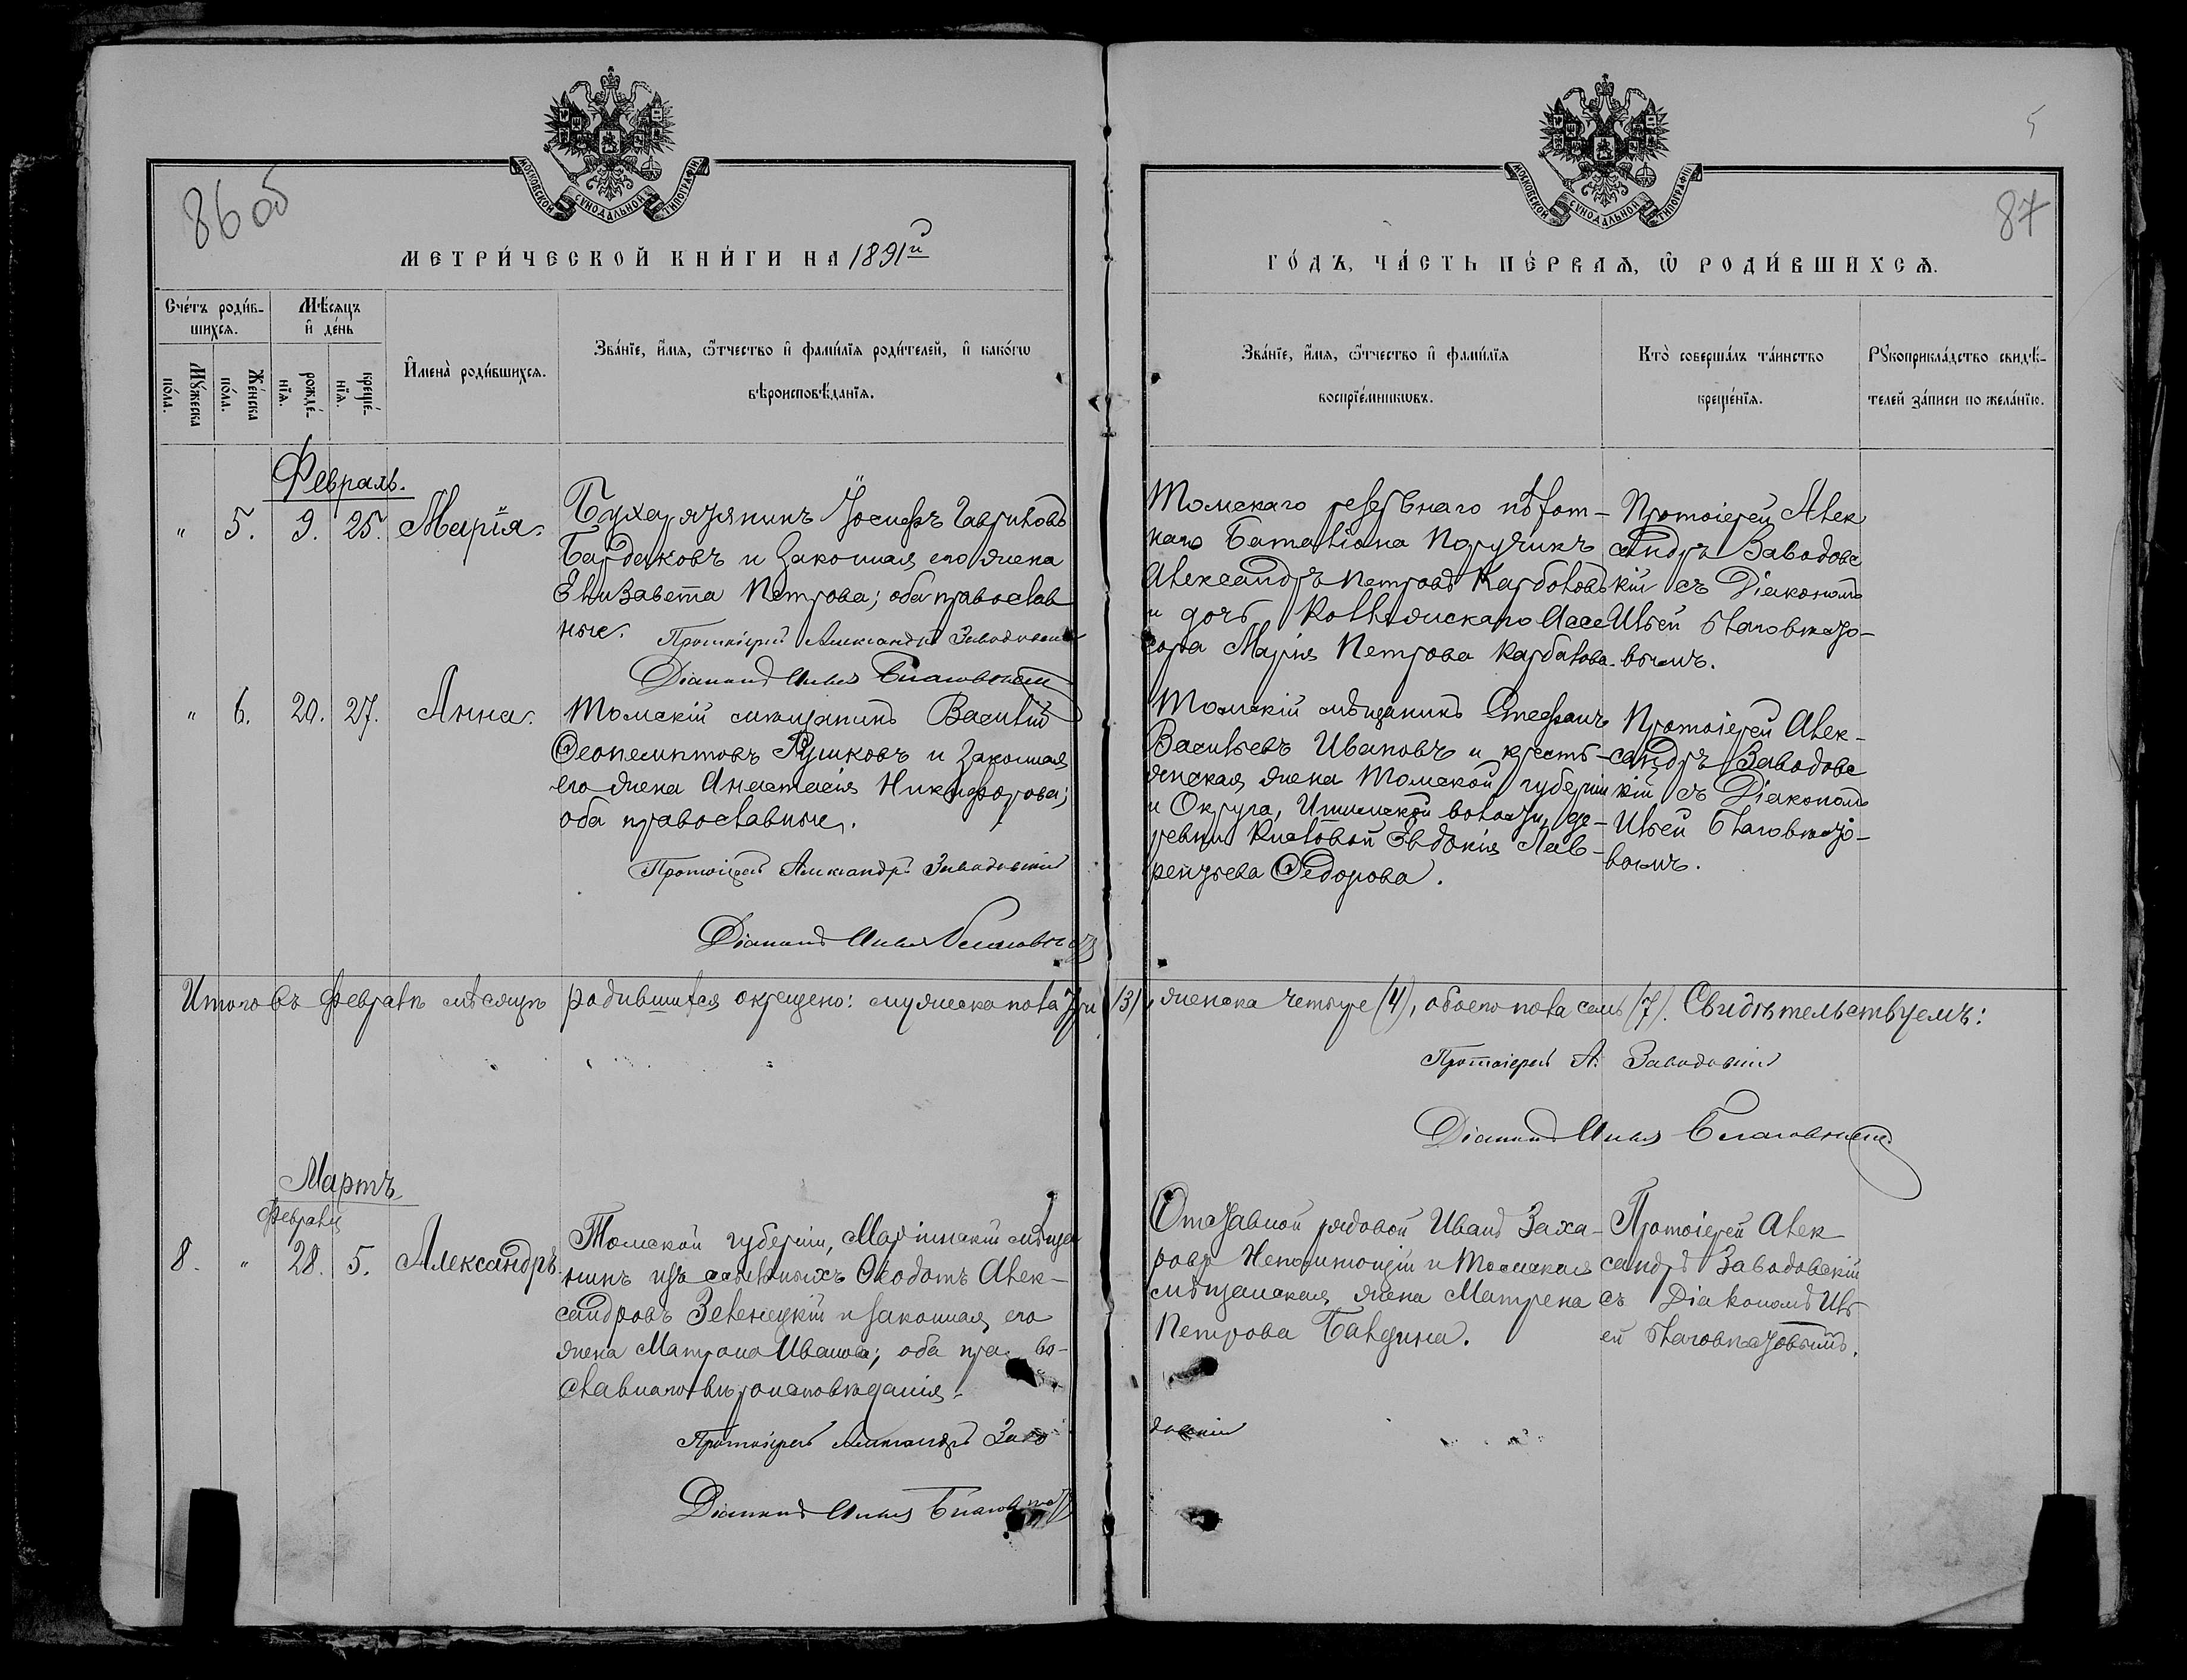 86 об
МОСКОВСКОЙ СѴНОДАЛЬНОЙ ТИПОГРАФІИ
МЕТРИ́ЧЕСКОЙ КНИ́ГИ НА 1891й
Сче́тъ роди́в-
шихсѧ.
Мꙋ́жеска
по́ла.
Же́нска
по́ла.
Мѣ́сѧцъ
и҆ де́нь
рожде́-
нїѧ.
креще́-
нїѧ.
И҆мена̀ роди́вшихсѧ.
Зва́нїе, и҆́мѧ, ѻ҆́тчество и҆ фами́лїѧ роди́телей, и҆ како́гѡ
вѣроисповѣ́данїѧ.
Февраль.
" 5. 9. 25. Марія.
Іосифъ Гавриловъ
Бардаковъ и законная его жена
Елизавета Петрова; оба православ
ные. Протоіерей Александръ Заводовскій
Діаконъ Илья Благовѣщ
" 6. 20. 27. Анна.
Томскій мѣщанинъ Василій
Ѳеопемптовъ и законная
его жена Анастасія Никифорова;
оба православные.
Протоіерей Александръ Заводовскій
Діаконъ Илья
Итого въ Февралѣ мѣсяцѣ родившихся окрещено: мужеска пола три (3), женска четыре (4), обоего пола семь (7). Свидѣтельствуемъ:
Мартъ
Февраля
8. " 28. 5. Александръ.
Томской губерніи, Маріинскій мѣща
нинъ изъ ссыльныхъ Ѳеодотъ Алек-
сандровъ Зеленецкій и законная его
жена Матрона Иванова; оба пра во-
славнаго вѣроисповѣданія.
Протоіерей Александръ Заво
Діаконъ Илья
5
87
МОСКОВСКОЙ СѴНОДАЛЬНОЙ ТИПОГРАФІИ
ГО́ДЪ, ЧА́СТЬ ПЕ́РВАѦ, Ѡ҆ РОДИ́ВШИХСѦ.
Зва́нїе, и҆́мѧ, ѻ҆́тчество и҆ фами́лїѧ
воспрїе́мникѡвъ.
Кто̀ соверша́лъ та́инство
креще́нїѧ.
Рꙋкоприкла́дство свидѣ́-
телей за́писи по жела́нїю.
Томскаго резервнаго пѣхот-
наго Баталіона Поручикъ
Александръ Петровъ Карболовъ
и дочь Коллежскаго Ассе
сора Марія Петрова
Протоіерей Алек
сандръ Заводовс
кій съ Діакономъ
Ильей
вымъ.
Томскій мѣщанинъ Стефанъ
Васильевъ Ивановъ и кресть-
янская жена Томской губерніи
и Округа, волости, де-
ревни Евдокія Лав-
рентьева Ѳедорова.
Протоіерей Алек-
сандръ Заводовс
кій съ Діакономъ
Ильей
вымъ.
Протоіерей А. Заводовскій
Діаконъ Илья
Отставной рядовой Иванъ Заха-
ровъ и Томская
мѣщанская жена Матрена
Петрова
довскій
Протоіерей Алек
сандръ Заводовскій
съ Діакономъ Иль
ей